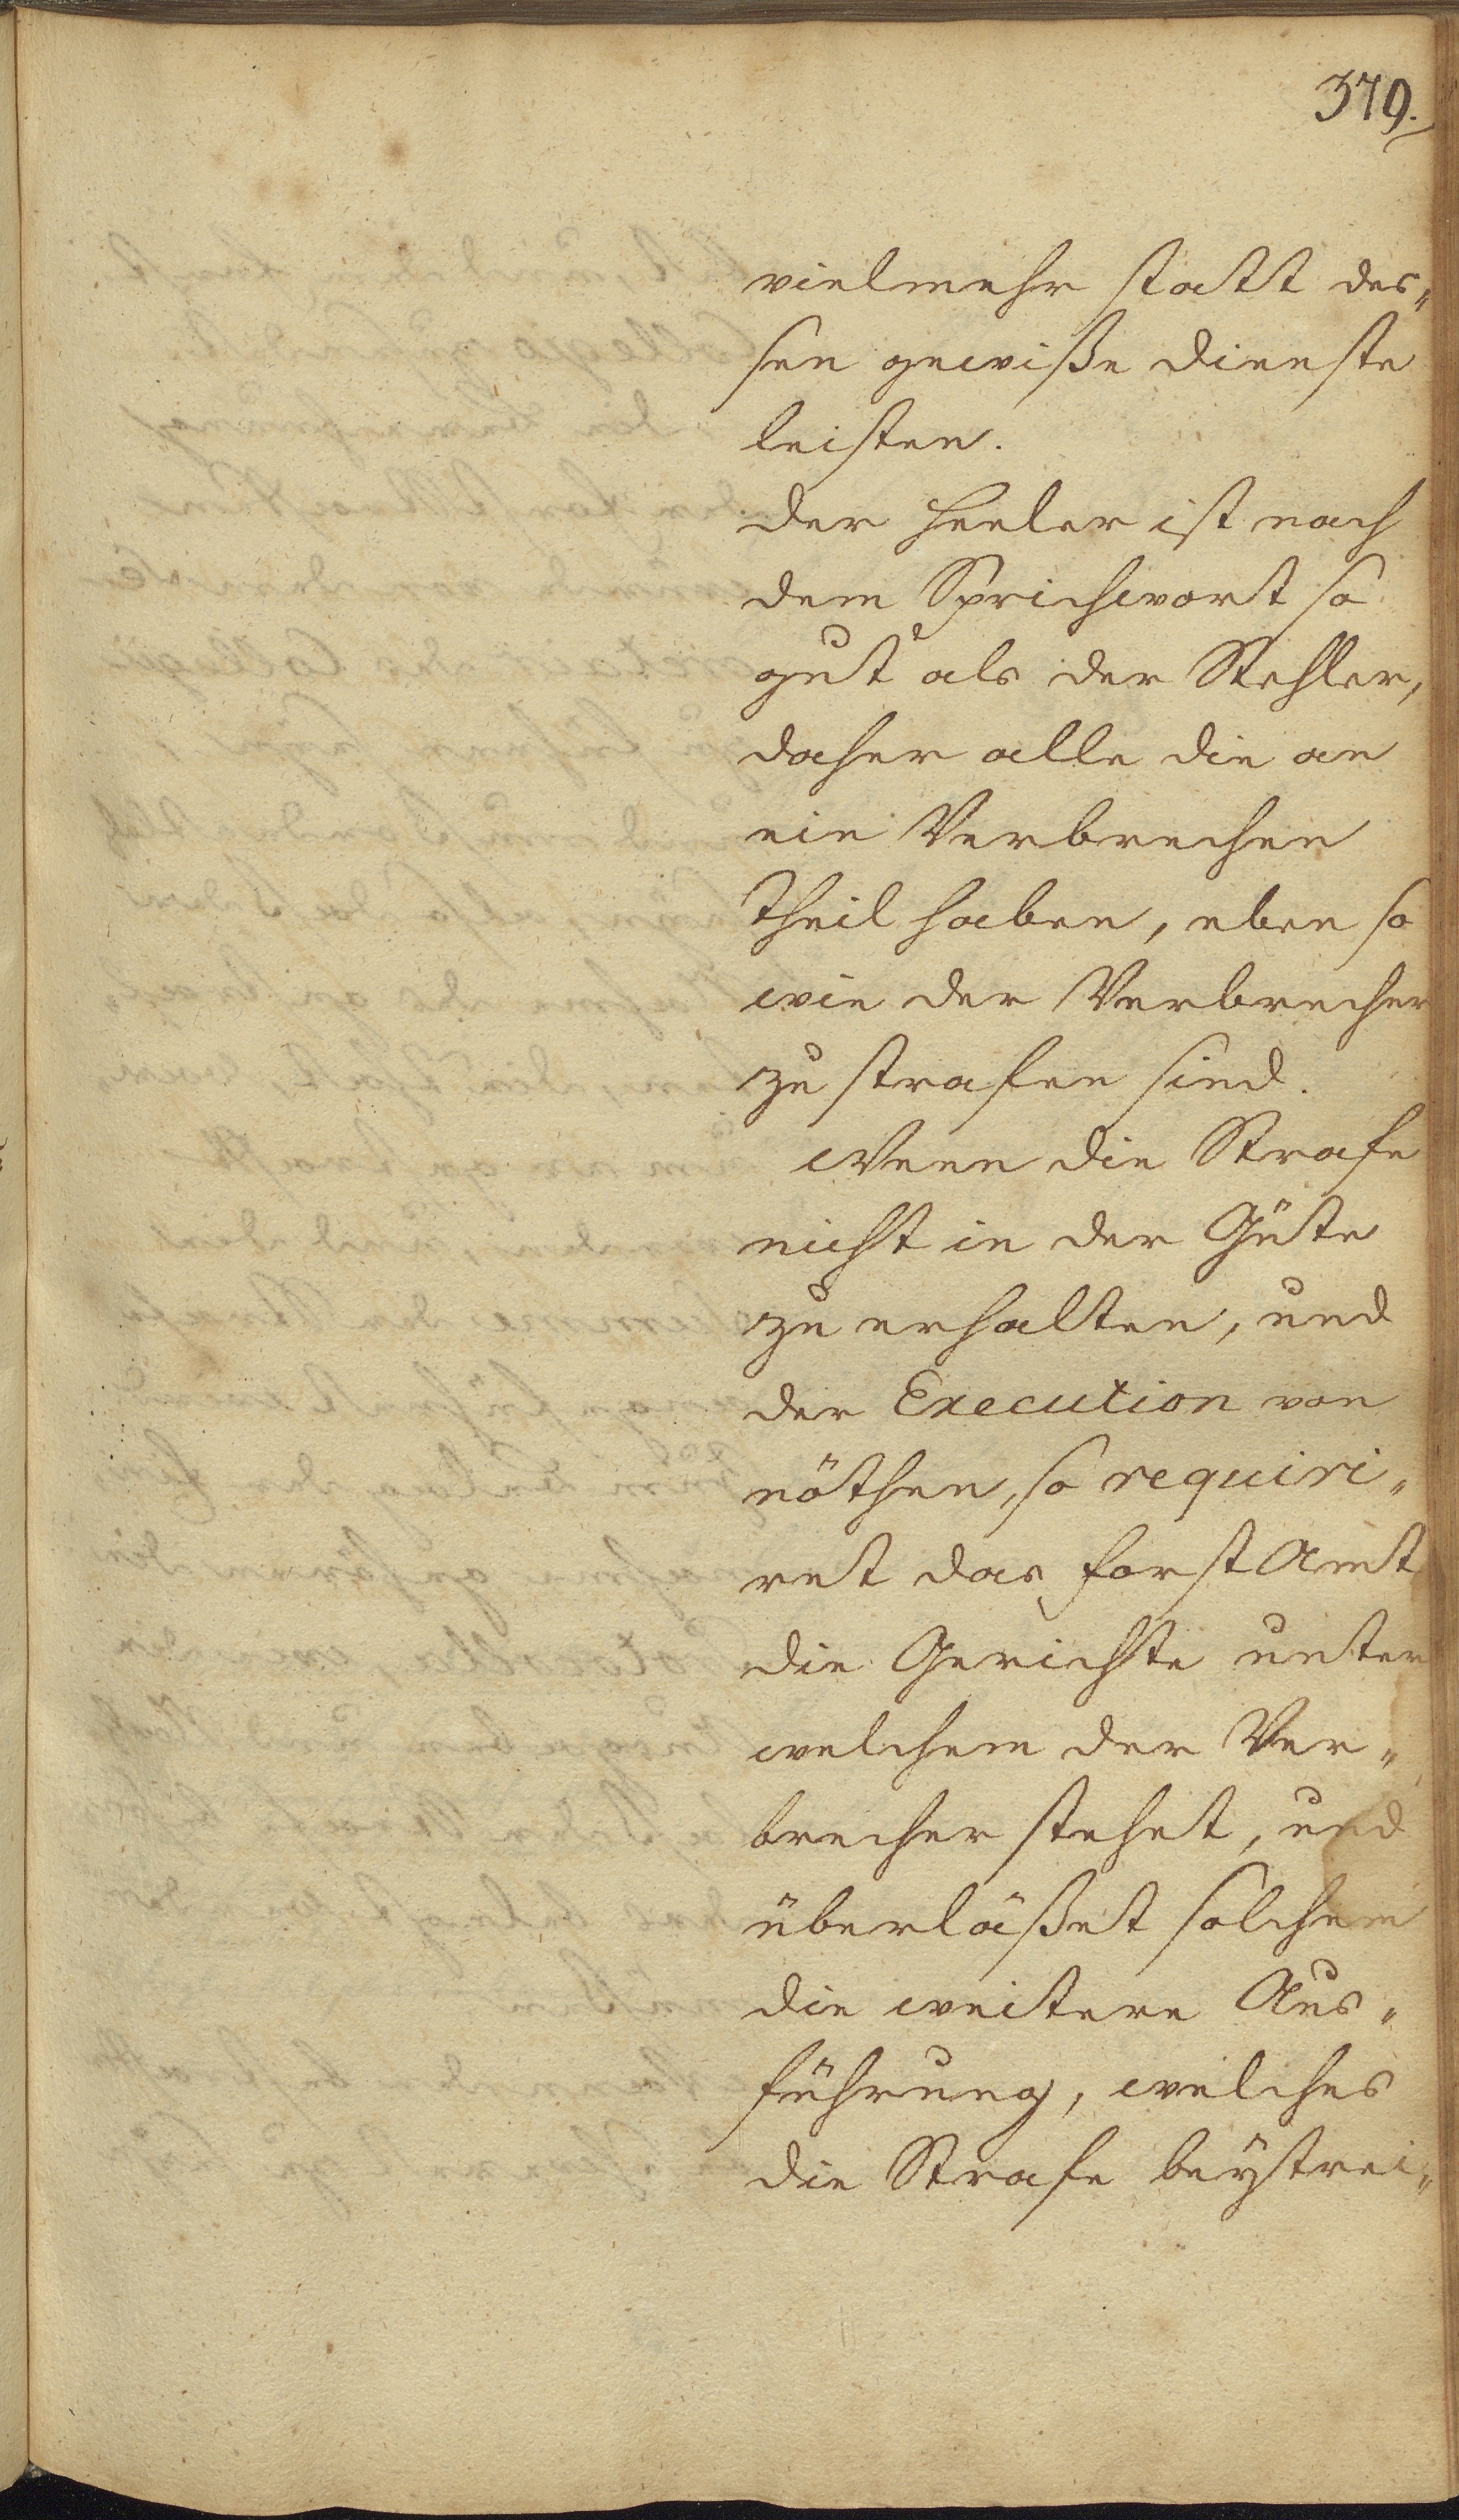 379.
vielmehr statt des„
sen gewiße Dienste
leisten.
Der Heeler ist nach
dem Sprichwort so
gut als der Stehler,
daher alle die an
ein Verbrechen
Theil haben, eben so
wie der Verbrecher
zu strafen sind.
Wenn die Strafe
nicht in der Güte
zu erhalten, und
der Execution von
nöthen, so requiri„
ret das Forst Amt
die Gerichte unter
welchem der Ver„
brecher stehet, und
überläßet solchem
die weitere Aus„
führung, welches
die Strafe beÿtrei„